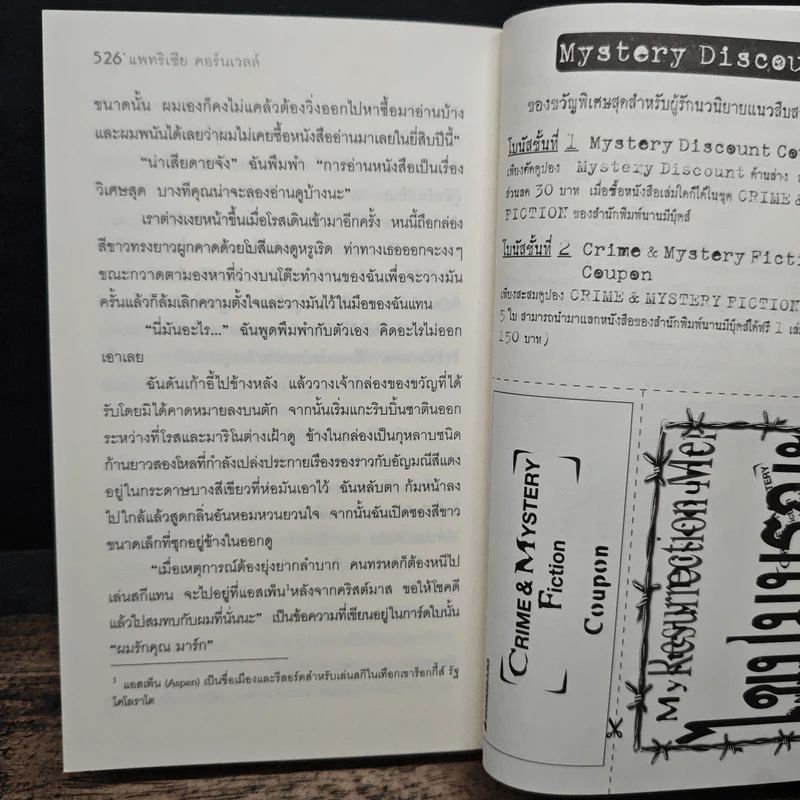 526 แพทริเซีย คอร์นเวลล์
ขนาดนั้น ผมเองก็คงไม่แคล้วต้องวิ่งออกไปหาซื้อมาอ่านบ้าง
และผมพนันได้เลยว่าผมไม่เคยซื้อหนังสืออ่านมาเลยในยี่สิบปีนี้"
"น่าเสียดายจัง" ฉันพึมพำ "การอ่านหนังสือเป็นเรื่อง
วิเศษสุด บางทีคุณน่าจะลองอ่านดูบ้างนะ"
เราต่างเงยหน้าขึ้นเมื่อโรสเดินเข้ามาอีกครั้ง หนนี้ถือกล่อง
สีขาวทรงยาวผูกคาดด้วยโบสีแดงดูหรูเริ่ด ท่าทางเธอออกจะงงๆ
ขณะกวาดตามองหาที่ว่างบนโต๊ะทำงานของฉันเพื่อจะวางมัน
ครั้นแล้วก็ล้มเลิกความตั้งใจและวางมันไว้ในมือของฉันแทน
"นี่มันอะไร..." ฉันพูดพึมพำกับตัวเอง คิดอะไรไม่ออก
เอาเลย
ฉันดันเก้าอี้ไปข้างหลัง แล้ววางเจ้ากล่องของขวัญที่ได้
รับโดยมิได้คาดหมายลงบนตัก จากนั้นเริ่มแกะริบบิ้นซาตินออก
ระหว่างที่โรสและมาริโนต่างเฝ้าดู ข้างในกล่องเป็นกุหลาบชนิด
ก้านยาวสองโหลที่กำลังเปล่งประกายเรืองรองราวกับอัญมณีสีแดง
อยู่ในกระดาษบางสีเขียวที่ห่อมันเอาไว้ ฉันหลับตา ก้มหน้าลง
ไปใกล้แล้วสูดกลิ่นอันหอมหวนยวนใจ จากนั้นฉันเปิดซองสีขาว
ขนาดเล็กที่ซุกอยู่ข้างในออกดู
"เมื่อเหตุการณ์ต้องยุ่งยากลำบาก คนทรหดก็ต้องหนีไป
เล่นสกีแทน จะไปอยู่ที่แอสเพ็น¹หลังจากคริสต์มาส ขอให้โชคดี
แล้วไปสมทบกับผมที่นั่นนะ" เป็นข้อความที่เขียนอยู่ในการ์ดใบนั้น
"ผมรักคุณ มาร์ก"
¹ แอสเพ็น (Aspen) เป็นชื่อเมืองและรีสอร์ตสำหรับเล่นสกีในเทือกเขาร็อกกี้ส์ รัฐ
โคโลราโด
Mystery Discou
ของขวัญพิเศษสุดสำหรับผู้รักนวนิยายแนวสืบส
โบนัสชั้นที่ 1 Mystery Discount Co
เพียงตัดคูปอง Mystery Discount ด้านล่าง
ส่วนลด 30 บาท เมื่อซื้อหนังสือเล่มใดก็ได้ในชุด CRIME &
FICTION ของสำนักพิมพ์นานมีบุ๊คส์
โบนัสชั้นที่ 2 Crime & Mystery Ficti
Coupon
เพียงสะสมคูปอง CRIME & MYSTERY FICTION
5 ใบ สามารถนำมาแลกหนังสือของสำนักพิมพ์นานมีบุ๊คส์ได้ฟรี 1 เล่
150 บาท)
CRIME & MYSTERY
Fiction
Coupon
My Resurrection Me